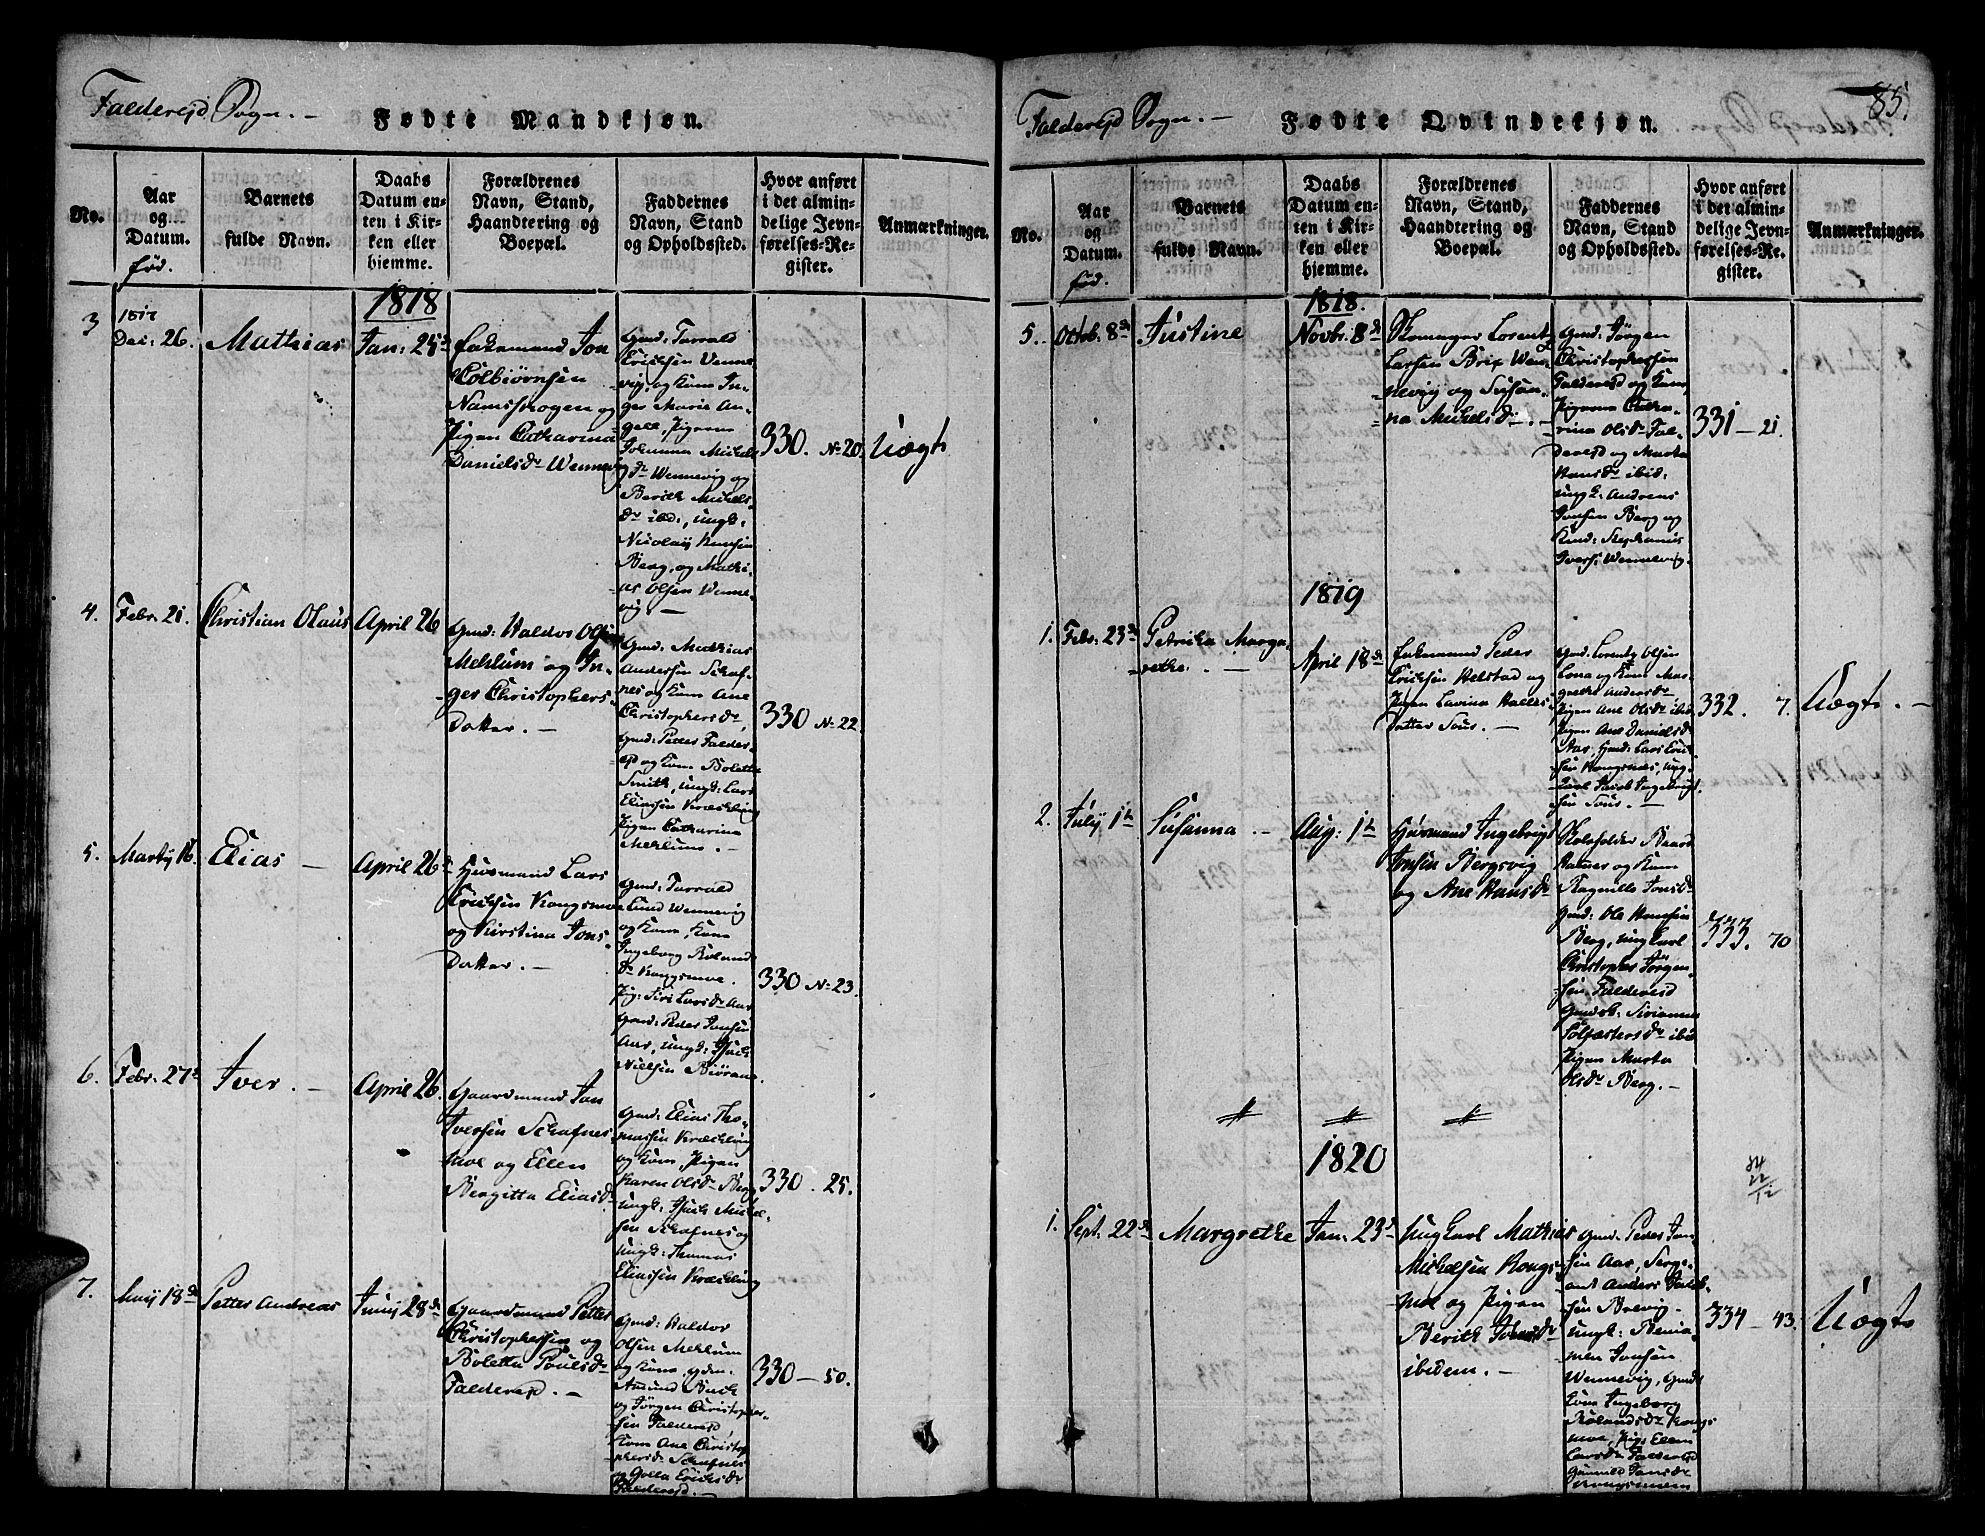 Falderejd Sogn. —
Fødte Mandkjøn.
No.
Aar
og
Datum.
fød.
Barnets
fulde Navn.
Daabs
Datum en-
ten i Kir-
ken eller
hjemme.
Forældrenes
Navn, Stand,
Haandtering og
Boepæl.
Faddernes
Navn, Stand
og Opholdssted.
Hvor anført
i det almin-
delige Jevn-
førelses-Re-
gister.
Anmærkninger.
1818
3
1817
Dec: 26.
Mathias
Jan: 25de
Enkemand Jon
Colbiørnsen
Namsskogen og
Pigen Catharina
Danielsdr Wennevig
Gmd: Torrald
Ericksen Wenne-
vig, og Kone In-
ger Marie An-
gell, Pigerne
Johanna Michels
dr Wennevig og
Berith Michels
dr ibd:, Ungk:
Nicolaij Hansen
Berg, og Mathi-
as Olsen Wenne-
vig. —
330. No 20.
Uægte
4.
Febr. 21.
Christian Olaus
April 26
Gmd: Haldor Olsen
Mehlum og In-
ger Christophers-
Datter. —
Gmd: Mathias
Andersen Schaf-
nes og Kone Ane
Christophersdr,
Gmd: Petter Falder-
ejd og Kone Bolette
Smith, Ungk: Lars
Eliassen Kræckling
Pigen Catharina
Mehlum. —
330 No 22.
5.
Martij 16.
Elias —
April 26
Huusmand Lars
Ericksen Kongsmoe
og Kirstina Jons-
Datter. —
Gmd: Torrald
Lund Wennevig
og Kone, Kone
Ingeborg Roland
dr Kongsmoe.
Pig: Siri Larsdr Aar
Gmd: Peder Jonsen
Aar, Ungk: Isach
Nielsen Biøraae.
330 No 23.
6.
Febr. 27de
Iver. —
April 26.
Gaardmand Jon
Iversen Schafnes-
moe og Ellen
Bergitta Eliasdr
Gmd: Elias Tho-
massen Kræckling
og Kone, Pigen
Karen Olsdr Berg
Ungk: Isach Michel-
sen Schafnes og
Ungk: Thomas
Eliassen Kræckling
330 — 25.
7.
Maij 18de
Petter Andreas
Junij 28de
Gaardmand Petter
Christophersen og
Boletta Poulsdr
Falderejd. —
Gmd: Haldor
Olsen Mehlum
og Kone, Gdm.
Amund Buch
og Jörgen Christopher-
sen Falderejd,
Kone Ane Christop
phersdr Schafnes
og Golla Ericksdr
Falderejd. —
330 — 50.
Falderejd Sogn. —
Fødte Qvindekjøn.
85.
No.
Aar
og
Datum.
fød.
Barnets
fulde Navn.
Daabs
Datum en-
ten i Kir-
ken eller
hjemme.
Forældrenes
Navn, Stand,
Haandtering og
Boepæl.
Faddernes
Navn, Stand
og Opholdssted.
Hvor anført
i det almin-
delige Jevn-
førelses-Re-
gister.
Anmærkninger.
1818.
5.
Octob. 8de
Justine
Novbr. 8de
Skomager Lorentz
Larsen Brix Wen-
nevig og Susan-
na Michelsdr. —
Gmd: Jörgen
Christophersen
Falderejd og Kone,
Pigerne Catha-
rina Olsdr Fal-
derejd og Marta
Hansdr ibid:
Ungk: Andreas
Jonsen Berg og
Gmd: Stephanus
Ivers: Wennevig.
331 — 21.
1819
1.
Febr: 23de
Petricka Marga-
rethe. —
April 18de
Enkemand Peder
Ericksen Helstad og
Pigen Lavina Halles-
datter Sous. —
Gmd: Lorentz Olsen
Lona og Kone Mar-
grethe Andersdr
Pigen Ane Olsdr ibid
Pigen Ane Danielsdr
Aar, Gmd: Lars Eric-
sen Kongsmoe, Ung-
karl Jacob Ingebrigt-
sen Sous. —
332. 7.
Uægte. —
2.
Julij 1te
Susanna —
Aug: 1te
Huusmand Ingebrigt
Jonsen Bergsvig
og Ane Hansdr
Skoleholder Baard
Ratner og Kone
Ragnille Jonsdr
Gmd: Ole Hansen
Berg, Ungkarl
Christopher Jörgen-
sen Falderejd
Gmdsk: Sirianna
Solfæstersdr ibid
Pigen Marta
Olsdr Berg. —
333. 70
1820
84
22
12
1.
Sept. 22de
Margrethe
Jan: 23de
Ungkarl Mathias
Michelsen Kongs-
moe og Pigen
Berith Johnsdr
ibidem. —
Gmd: Peder Jon-
sen Aar, Serge-
ant Anders Jacob-
sen Brevig —
Ungk: Benia-
men Jonsen
Wennevig, Gmds
Kone Ingeborg
Rolandsdr Kongs-
moe, Pig: Ellen
Larsdr Falderejd
Gunnild Jonsdr
Kongsmoen
334 — 43.
Uægte